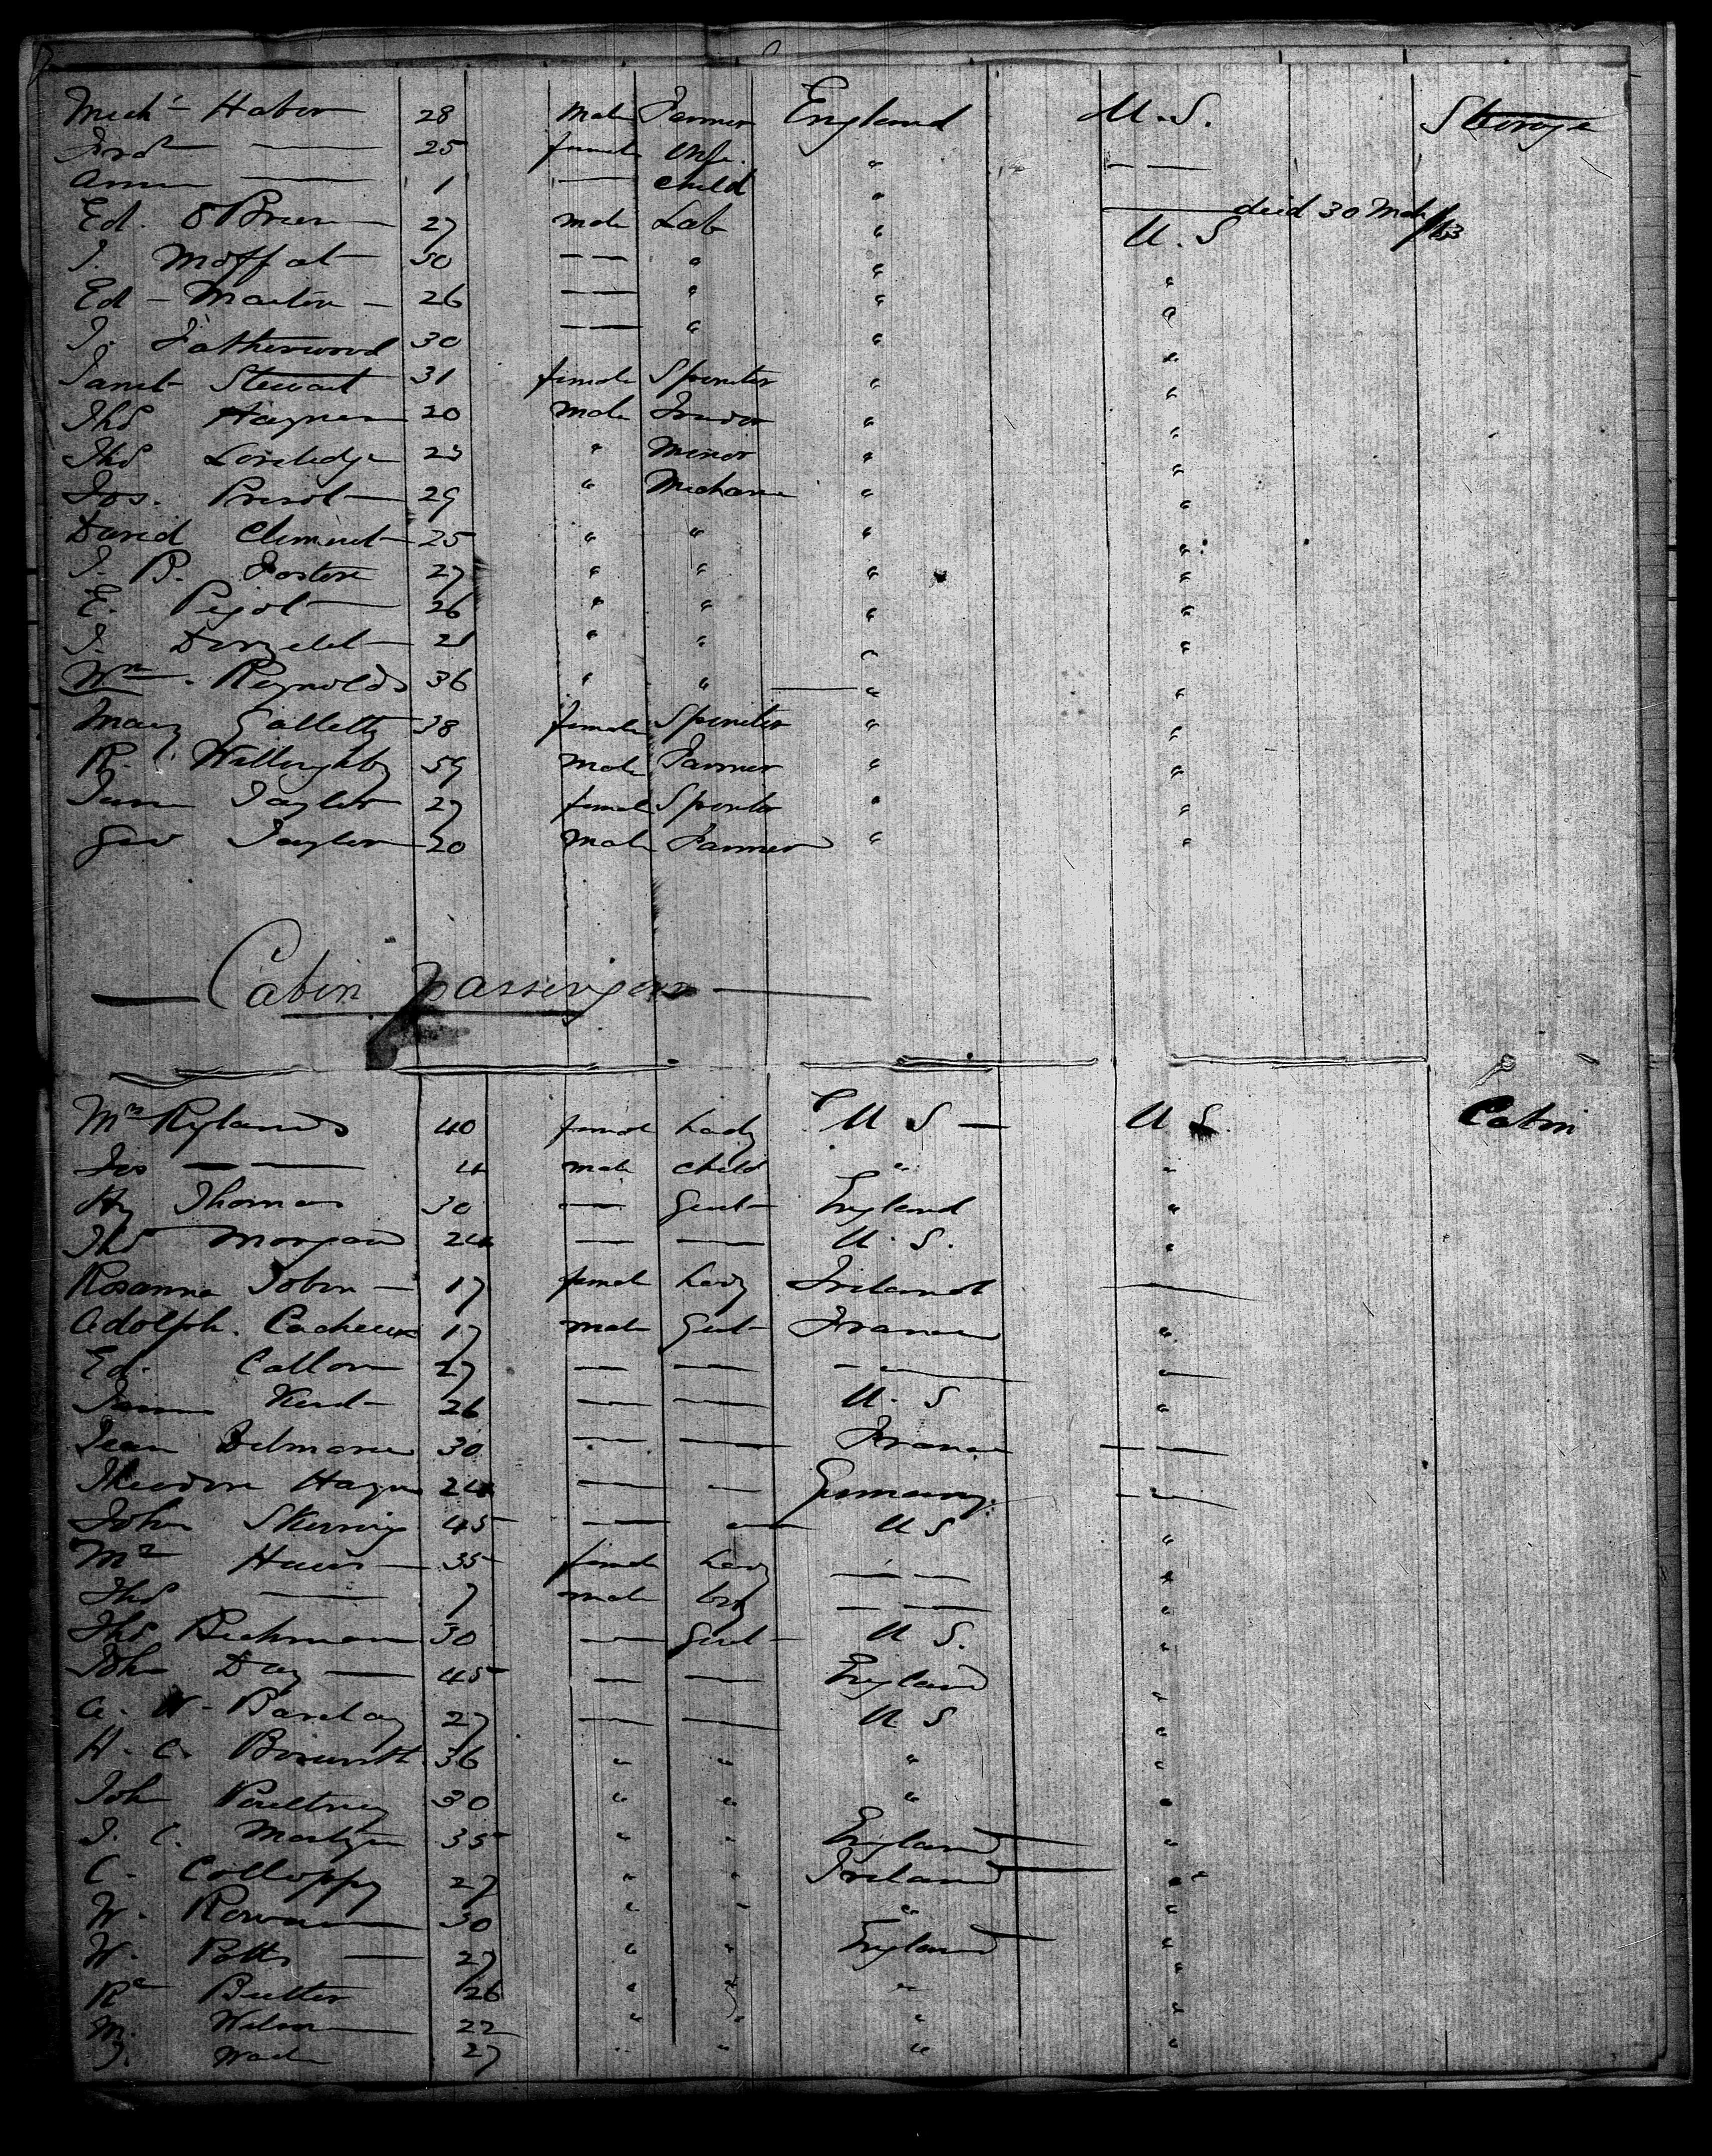 Mich'l Haber 28 Male Farmer England U.S. Steerage
Fred — 25 female Wife " — —
Ann — 1 — child " — died 30 Mch /63
Ed. O'Brien — 27 male Lab " U.S
J. Moffat — 50 — — " " "
Ed — Martin — 26 — — " " "
J. Fatherwood 30 — — " " "
Janet Stewart 31 female Spinster " "
Thos Haynes 20 male "  "
Thos Loveledge 23 " Miner " "
Jos. — 29 " Mechanic " "
David Climent — 25 " " " "
J. B. Foster 27 " " " "
E. Pigot — 26 " " " "
J. — 21 " " " "
Wm. Reynolds 36 " " — " "
Mary Galletty 38 female Spinster " "
R. C. Willoughby 59 Male Farmer " "
Jane Taylor 27 female Spinster " "
Geo Taylor 20 male Farmer " "
— Cabin passengers —
Mrs Rylands 40 female Lady U S — U S. Cabin
Jos — — 4 male child " "
Hy Thomas 30 — Gent — England "
Thos Morgan 24 — — U. S. "
Rosanna Tobin — 17 female Lady Ireland —
Adolph. Cacheux 17 male Gent — France "
Ed. Callon 27 — — — —
James — 26 — — U. S "
Jean Delmare 30 — — France — —
Theodore Hagen 24 — — Germany. —
John 45 — — U S "
Mrs — 35 female Lady — — "
Thos — 7 male boy — — "
Thos Buchman 30 — Gent — U S. "
John Day — 45 — — England "
A. W. Barclay 27 — — U S "
H. C. 36 " " " "
John Poultney 30 " " " "
J. C. 35 " " England — "
C. Colloppy 27 " " Ireland — "
W. Rowan 30 " " " "
W. Potts — 27 " " England — "
Rd Butler 26 " " " "
M. Wilson — 22 " " " "
J. Wade 27 " " " "